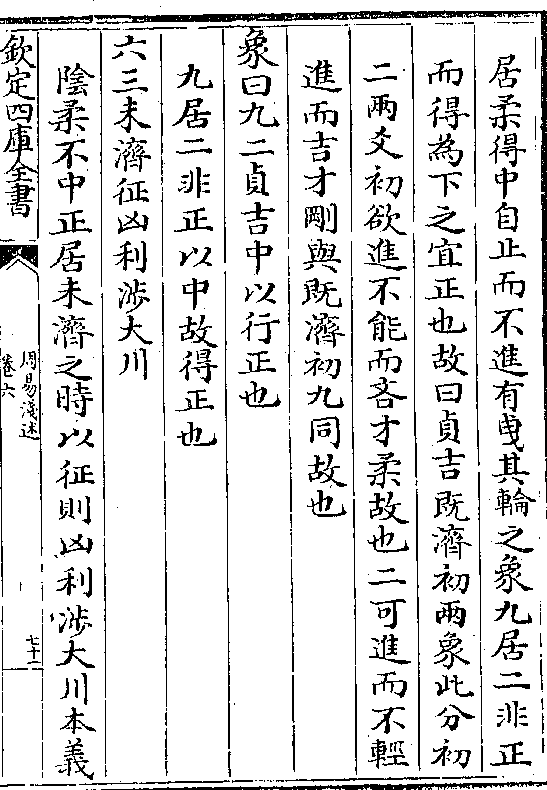 居柔得中自止而不進有曵其輪之象九居二非正
而得為下之宜正也故曰貞吉既濟初兩象此分初
二兩爻初欲進不能而吝才柔故也二可進而不輕
進而吉才剛與既濟初九同故也
象曰九二貞吉中以行正也
九居二非正以中故得正也
六三未濟征凶利涉大川
陰柔不中正居未濟之時以征則凶利涉大川本義
欽定四庫全書
周易淺述
卷六
七十一